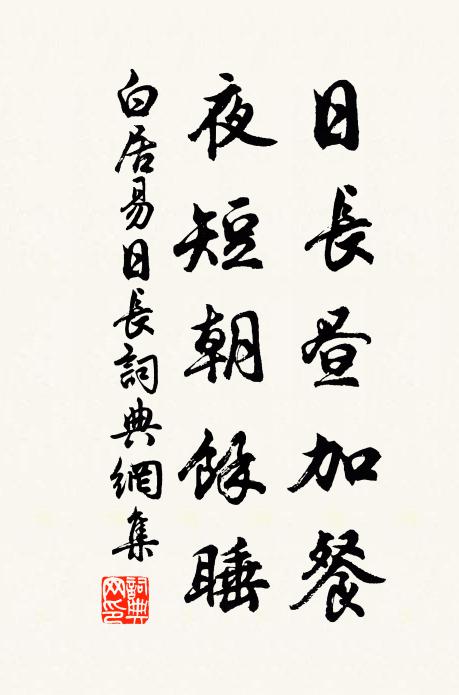 日長晝加餐
夜短朝餘睡
白居易日長詞典網集
詞典網印